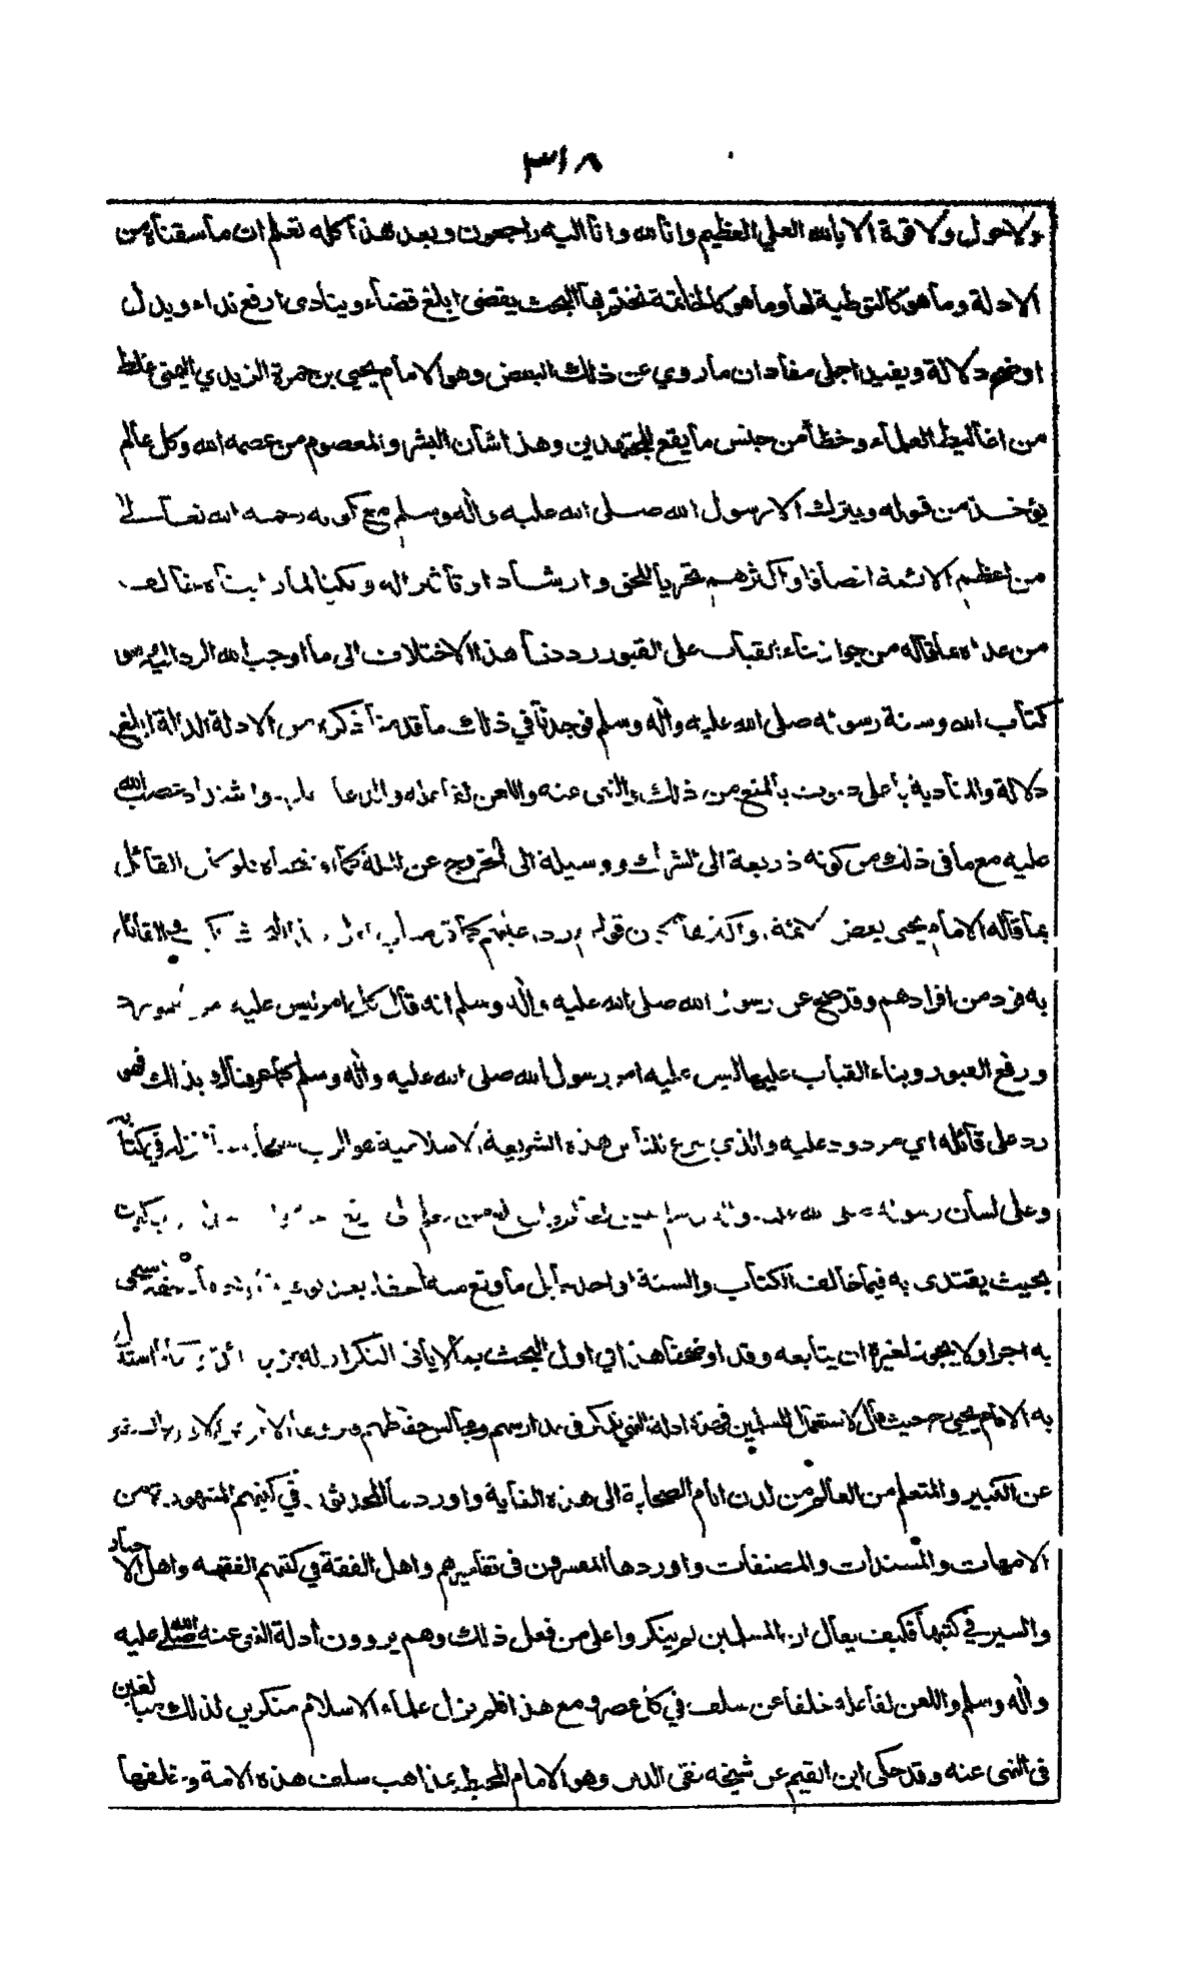 ٣١٨
ولا حول ولا قوة الا بالله العلي العظيم وانا لله وانا اليه راجعون وبعد هذا كله تعلم ان ما سقناه من
الادلة وما هو كالتوطية لها وما هو كالخاتمة نختم بها البحث يقضي ابلغ قضاء وينادى ارفع نداء ويدل
اوضح دلالة ويفيد اجلى مفاد ان ما روي عن ذلك البعض وهو الامام يحيى بن حمزة الزيدي اليمنى غلط
من اغاليط العلماء وخطأ من جنس ما يقع للمجتهدين وهذا شأن البشر والمعصوم من عصمه الله وكل عالم
يؤخذ من قوله ويترك الا رسول الله صلى الله عليه واله وسلم مع كونه رحمه الله تعالى
من اعظم الائمة انصافا واكثرهم تحريا للحق وارشادا وتأثيرا له ولكنا لما رايناه خالف
من عداه بما قاله من جواز بناء القباب على القبور رددنا هذا الاختلاف الى ما اوجب الله الرد اليه وهو
كتاب الله وسنة رسوله صلى الله عليه واله وسلم فوجدنا في ذلك ما قدمنا ذكره من الادلة الدالة ابلغ
دلالة والمنادية باعلى صوت بالمنع من ذلك والنهى عنه واللعن لفاعله والدعاء عليه واشتداد غضب الله
عليه مع ما فى ذلك من كونه ذريعة الى الشرك ووسيلة الى الخروج عن الملة كما اوضحناه فلو كان القائل
بما قاله الامام يحيى بعض الائمة واكثرها لكان قولهم ردا عليهم كما فى هذا البحث فكيف القائل
به فرد من افرادهم وقد صح عن رسول الله صلى الله عليه واله وسلم انه قال كل امر ليس عليه امرنا فهو رد
ورفع القبور وبناء القباب عليها ليس عليه امر رسول الله صلى الله عليه واله وسلم كما عرفناك بذلك فهو
رد على قائله اي مردود عليه والذي شرع للناس هذه الشريعة الاسلامية هو الرب سبحانه بما انزله في كتابه
وعلى لسان رسوله صلى الله عليه وسلم فليس لعالم وان بلغ من العلم الى
بحيث يقتدى به فيما خالف الكتاب والسنة او احدهما بل ما وقع منه من الخطأ بعد توفية الاجتهاد حقه يستحق
به اجرا ولا يجوز لغيره ان يتابعه وقد اوضحنا هذا في اول البحث بما لا ياتى التكرار له بمزيد فائدة واما ما استدل
به الامام يحيى رح حيث قال لاستعمال المسلمين فمردود لان ادلة فى مدارسهم ومجالس حفاظهم يرويها الآخر عن الاول والصغير
عن الكبير والمتعلم من العالم من لدن ايام الصحابة الى هذه الغاية واوردها المحدثون في كتبهم المشهورة من
الامهات والمسندات والمصنفات واوردها المفسرون فى تفاسيرهم واهل الفقة في كتبهم الفقهيه واهل الاخبار
والسير في كتبها فكيف يقال ان المسلمين لم ينكروا على من فعل ذلك وهم يروون ادلة النهى عنه صلى الله عليه
واله وسلم واللعن لفاعله خلفا عن سلف في كل عصر ومع هذا فلم يزل علماء الاسلام منكرين لذلك مبالغين
فى النهى عنه وقد حكى ابن القيم عن شيخه تقى الدين وهو الامام المحيط بمذاهب سلف هذه الامة وخلفها